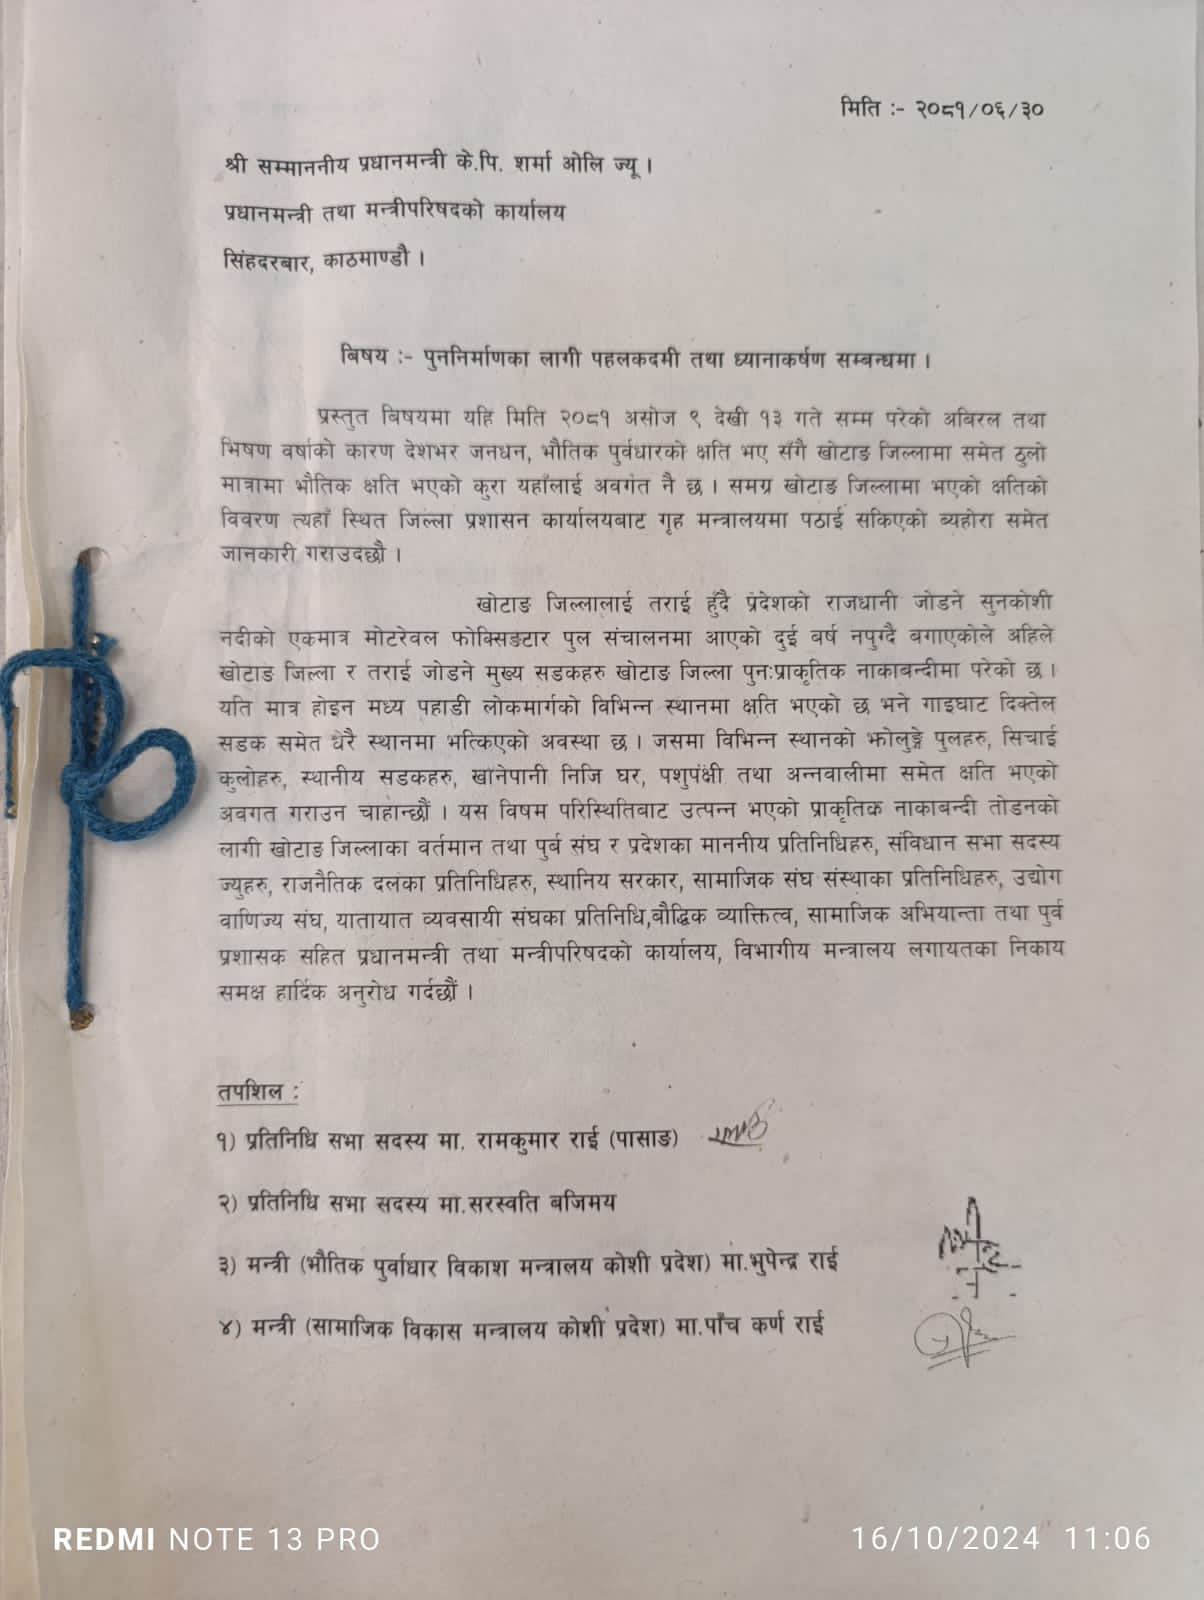 मिति :- २०८१/०६/३०
श्री सम्माननीय प्रधानमन्त्री के.पि. शर्मा ओलि ज्यू ।
प्रधानमन्त्री तथा मन्त्रीपरिषदको कार्यालय
सिंहदरबार, काठमाण्डौ ।
बिषय :- पुननिर्माणका लागी पहलकदमी तथा ध्यानाकर्षण सम्बन्धमा ।
प्रस्तुत बिषयमा यहि मिति २०८१ असोज ९ देखी १३ गते सम्म परेको अबिरल तथा
भिषण वर्षाको कारण देशभर जनधन, भौतिक पुर्वधारको क्षति भए सँगै खोटाङ जिल्लामा समेत ठुलो
मात्रामा भौतिक क्षति भएको कुरा यहाँलाई अवगत नै छ । समग्र खोटाङ जिल्लामा भएको क्षतिको
विवरण त्यहाँ स्थित जिल्ला प्रशासन कार्यालयबाट गृह मन्त्रालयमा पठाई सकिएको ब्यहोरा समेत
जानकारी गराउदछौ ।
खोटाङ जिल्लालाई तराई हुँदै प्रदेशको राजधानी जोडने सुनकोशी
नदीको एकमात्र मोटरेवल फोक्सिङटार पुल संचालनमा आएको दुई बर्ष नपुग्दै बगाएकोले अहिले
खोटाङ जिल्ला र तराई जोडने मुख्य सडकहरु खोटाङ जिल्ला पुन:प्राकृतिक नाकाबन्दीमा परेको छ ।
यति मात्र होइन मध्य पहाडी लोकमार्गको विभिन्न स्थानमा क्षति भएको छ भने गाइघाट दिक्तेल
सडक समेत धेरै स्थानमा भत्किएको अवस्था छ । जसमा विभिन्न स्थानको झोलुङ्गे पुलहरु, सिचाई
कुलोहरु, स्थानीय सडकहरु, खानेपानी निजि घर, पशुपंक्षी तथा अन्नवालीमा समेत क्षति भएको
अवगत गराउन चाहान्छौं । यस विषम परिस्थितिबाट उत्पन्न भएको प्राकृतिक नाकाबन्दी तोडनको
लागी खोटाङ जिल्लाका वर्तमान तथा पुर्ब संघ र प्रदेशका माननीय प्रतिनिधिहरु, संविधान सभा सदस्य
ज्युहरु, राजनैतिक दलका प्रतिनिधिहरु, स्थानिय सरकार, सामाजिक संघ संस्थाका प्रतिनिधिहरु, उद्योग
वाणिज्य संघ, यातायात व्यवसायी संघका प्रतिनिधि,बौद्धिक व्याक्तित्व, सामाजिक अभियान्ता तथा पुर्व
प्रशासक सहित प्रधानमन्त्री तथा मन्त्रीपरिषदको कार्यालय, विभागीय मन्त्रालय लगायतका निकाय
समक्ष हार्दिक अनुरोध गर्दछौं ।
तपशिल :
१) प्रतिनिधि सभा सदस्य मा. रामकुमार राई (पासाङ)
२) प्रतिनिधि सभा सदस्य मा.सरस्वति बजिमय
३) मन्त्री (भौतिक पुर्वाधार विकाश मन्त्रालय कोशी प्रदेश) मा.भुपेन्द्र राई
४) मन्त्री (सामाजिक विकास मन्त्रालय कोशी प्रदेश) मा.पाँच कर्ण राई
REDMI NOTE 13 PRO
16/10/2024 11:06